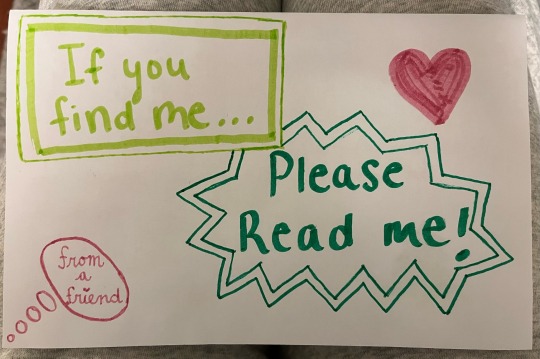 If you
find me...
Please
Read me!
from
a
friend